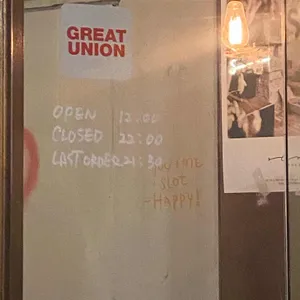 GREAT
UNION
OPEN 12:00
CLOSED 22:00
LAST ORDER 21:30
SLOE
-HAPPY!